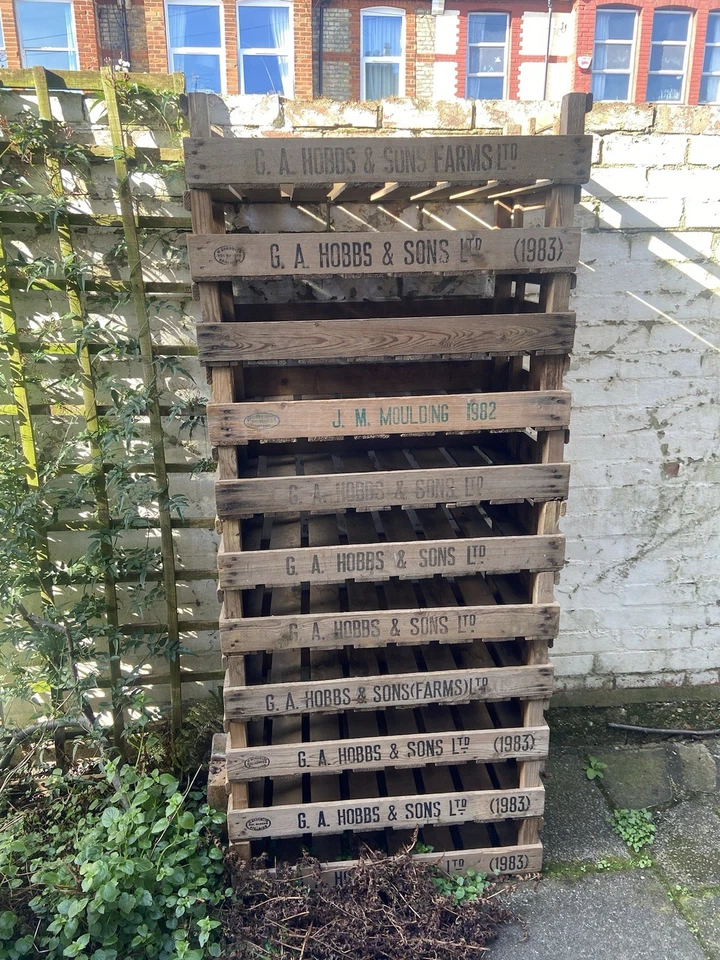 G. A. HOBBS & SONS FARMS LTD
G. A. HOBBS & SONS LTD (1983)
J. M. MOULDING 1982
G. A. HOBBS & SONS LTD
G. A. HOBBS & SONS LTD
G. A. HOBBS & SONS LTD
G. A. HOBBS & SONS(FARMS)LTD
G. A. HOBBS & SONS LTD (1983)
G. A. HOBBS & SONS LTD (1983)
LTD (1983)